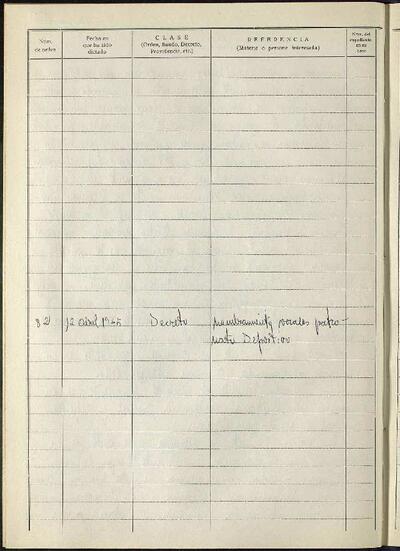 Núm. de orden
Fecha en que ha sido dictado
CLASE
(Orden, Bando, Decreto, Providencia, etc.)
REFERENCIA
(Materia o persona interesada)
Núm. del expediente en su caso
82 12 abril 19 Decreto nombramiento vocales patro-
nato Deportivo